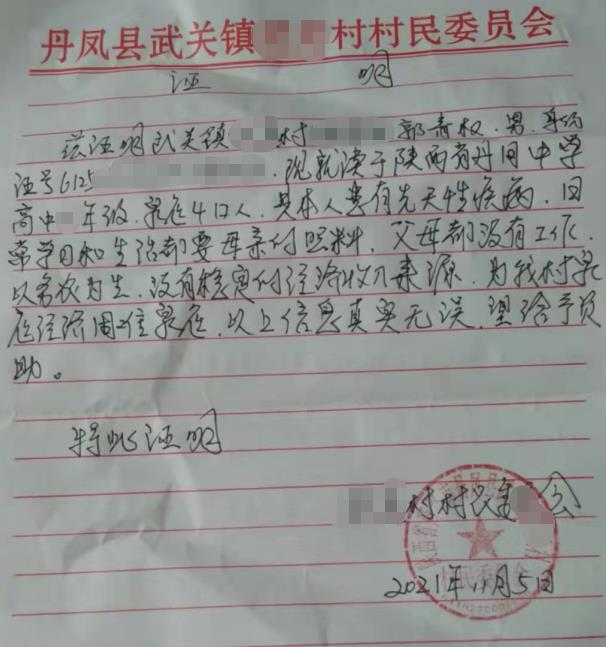 丹凤县武关镇 村村民委员会
证 明
兹证明武关镇 村 郭青权、男、身份
证号6125 ，现就读于陕西省丹凤中学
高中 年级，家庭4口人，其本人患有先天性疾病，日
常学习和生活都要母亲付照料，父母都没有工作，
以务农为生，没有稳定付经济收入来源，为我村家
庭经济困难家庭，以上信息真实无误，望给予资
助。
特此证明
村村民委 会
村民委员会
2021年11月5日